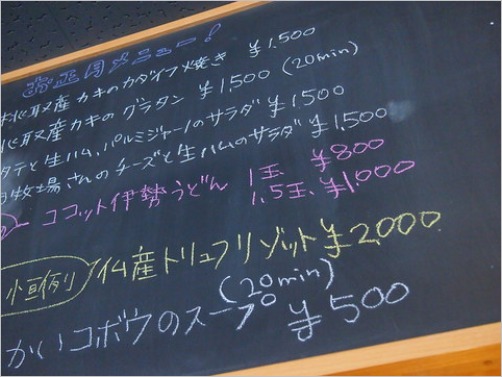 お正月メニュー!
取産カキのカダイフ焼き ¥1,500
取産カキのグラタン ¥1,500 (20min)
タテと生ハム、パルミジャーノのサラダ ¥1,500
牧場さんのチーズと生ハムのサラダ ¥1,500
ココット伊勢うどん 1玉 ¥800
1.5玉 ¥1,000
恒例 仏産トリュフリゾット ¥2,000
(20min)
かいコボウのスープ ¥500